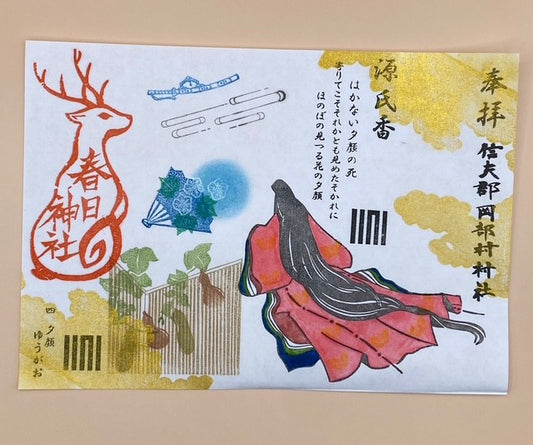 奉拝
信夫郡岡部村村社
源氏香
はかない夕顔の死
寄りてこそそれかとも見めたそかれに
ほのぼの見つる花の夕顔
春日
神社
四 夕顔
ゆうがお